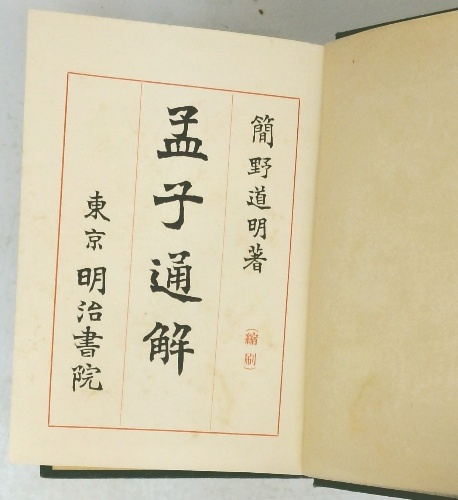 簡野道明著
（縮刷）
孟子通解
東京 明治書院